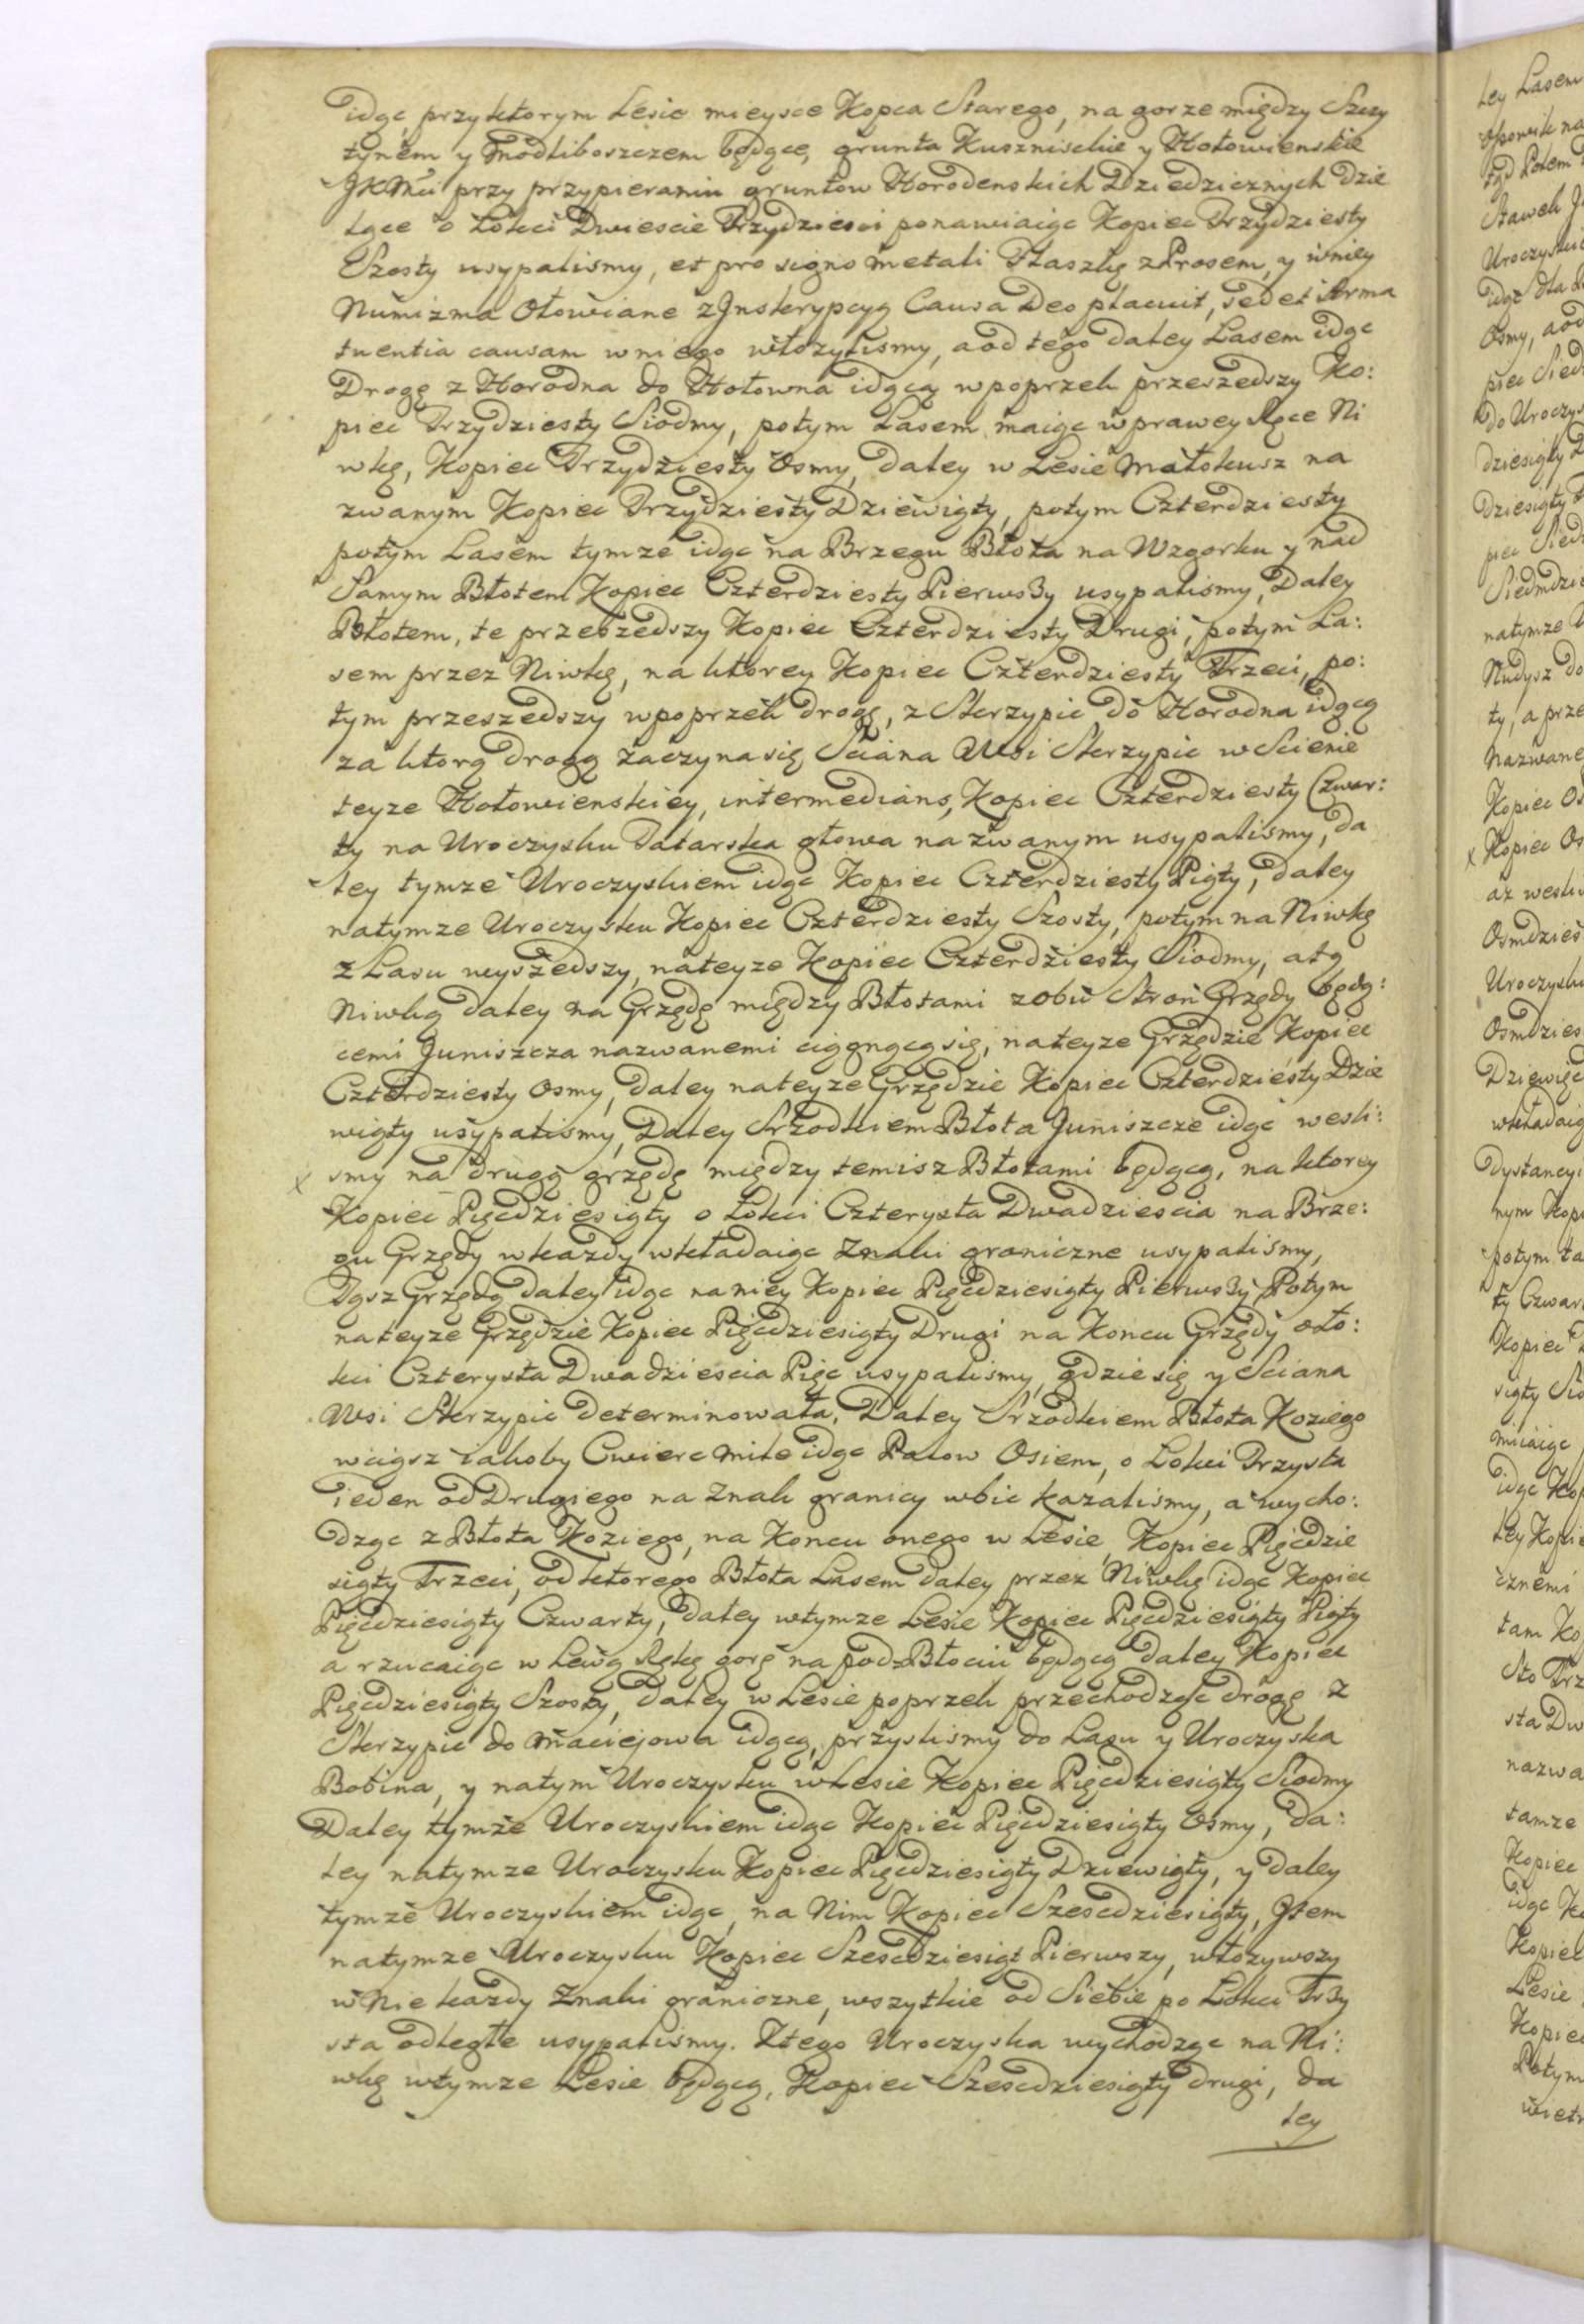 idąc, przyktorym Lesie mieysce Kopca Starego, na gorze między Szczy
tynem y Modliboszczem będące, grunta Kuszniskie y Hołowienskie
JKMci przy przypieraniu gruntow Horodenskich Dziedzicznych dzie
lące o Łokci Dwiescie Trzydziesci ponawiaiąc Kopiec Trzydziesty
Szosty usypalismy, et pro signo metali Flaszkę zProsem, y wniey
Numizma Ołowiane zJnskrypcyą Causa Deo placuit, sed et Arma
tuentia causam wniego włozylismy, aod tego daley Lasem idąc
Drogę z Horodna do Hołowna idącą wpoprzek przeszedszy Ko:
piec Trzydziesty Siodmy, potym Lasem maiąc wprawey Ręce Ni
wkę, Kopiec Trzydziesty Osmy, daley w Lesie Małokusz na
zwanym Kopiec Trzydziesty Dziewiąty, potym Czterdziesty
potym Lasem tymze idąc na Brzegu Błota na Wzgorku y nad
Samym Błotem Kopiec Czterdziesty Pierwszy usypalismy, Daley
Błotem, te przeszedszy Kopiec Czterdziesty Drugi, potym La:
sem przez Niwkę, na ktorey Kopiec Czterdziesty Trzeci, po:
tym przeszedszy wpoprzek drogę, z Skrzypic do Horodna idącą
za ktorą drogą zaczyna się Sciana Wsi Skrzypic w Scienie
teyze Hołowienskiey, intermedians, Kopiec Czterdziesty Czwar:
ty na Uroczysku Tatarska głowa nazwanym usypalismy, da
ley tymze Uroczyskiem idąc Kopiec Czterdziesty Piąty, daley
natymze Uroczysku Kopiec Czterdziesty Szosty, potym na Niwkę
z Lasu wyszedszy, nateyze Kopiec Czterdziesty Siodmy, atą
Niwką daley na Grzędę między Błotami zobu Stron Grzędy będą:
cemi Juniszcza nazwanemi ciągnącą się, nateyze Grzędzie Kopiec
Czterdziesty Osmy, daley nateyze Grzędzie Kopiec Czterdziesty Dzie
wiąty usypalismy, Daley Srzodkiem Błota Juniszcze idąc wesli:
x smy na drugą grzędę między temisz Błotami będącą, na ktorey
Kopiec Pięcdziesiąty o Łokci Czterysta Dwadziescia na Brze:
gu Grzędy wkazdy wkładaiąc Znaki graniczne usypalismy,
Tąsz Grzędą daley idąc naniey Kopiec Pięcdziesiąty Pierwszy, Potym
nateyze Grzędzie Kopiec Pięcdziesiąty Drugi na Koncu Grzędy oło:
kci Czterysta Dwadziescia Pięc usypalismy, gdzie się y Sciana
Wsi Skrzypic determinowała. Daley Srzodkiem Błota Koziego
wciąsz iakoby Cwierc mile idąc Palow Osiem, o Łokci Trzysta
ieden od Drugiego na Znak granicy wbic kazalismy, a wycho:
dząc z Błota Koziego, na Koncu onego w Lesie, Kopiec Pięcdzie
siąty Trzeci, od ktorego Błota Lasem daley przez Niwkę idąc Kopiec
Pięcdziesiąty Czwarty, daley wtymze Lesie Kopiec Pięcdziesiąty Piąty
a rzucaiąc w Lewą Rękę gorę na podz Błociu będącą daley Kopiec
Pięcdziesiąty Szosty, daley w Lesie poprzek przechodząc drogę z
Skrzypic do Maciejowa idącą, przyslismy do Lasu y Uroczyska
Bobina, y natym Uroczysku wLesie Kopiec Pięcdziesiąty Siodmy
Daley tymze Uroczyskiem idąc Kopiec Pięcdziesiąty Osmy, da:
ley natymze Uroczysku Kopiec Pięcdziesiąty Dziewiąty, y daley
tymze Uroczyskiem idąc, na Nim Kopiec Szescdziesiąty, Jtem
natymze Uroczysku Kopiec Szescdziesiąt Pierwszy, włozywszy
wNie kazdy Znaki graniczne, wszytkie od Siebie po Łokci Trzy
sta odległe usypalismy. Ztego Uroczyska wychodząc na Ni:
wkę wtymze Lesie będącą, Kopiec Szescdziesiąty drugi, da
ley